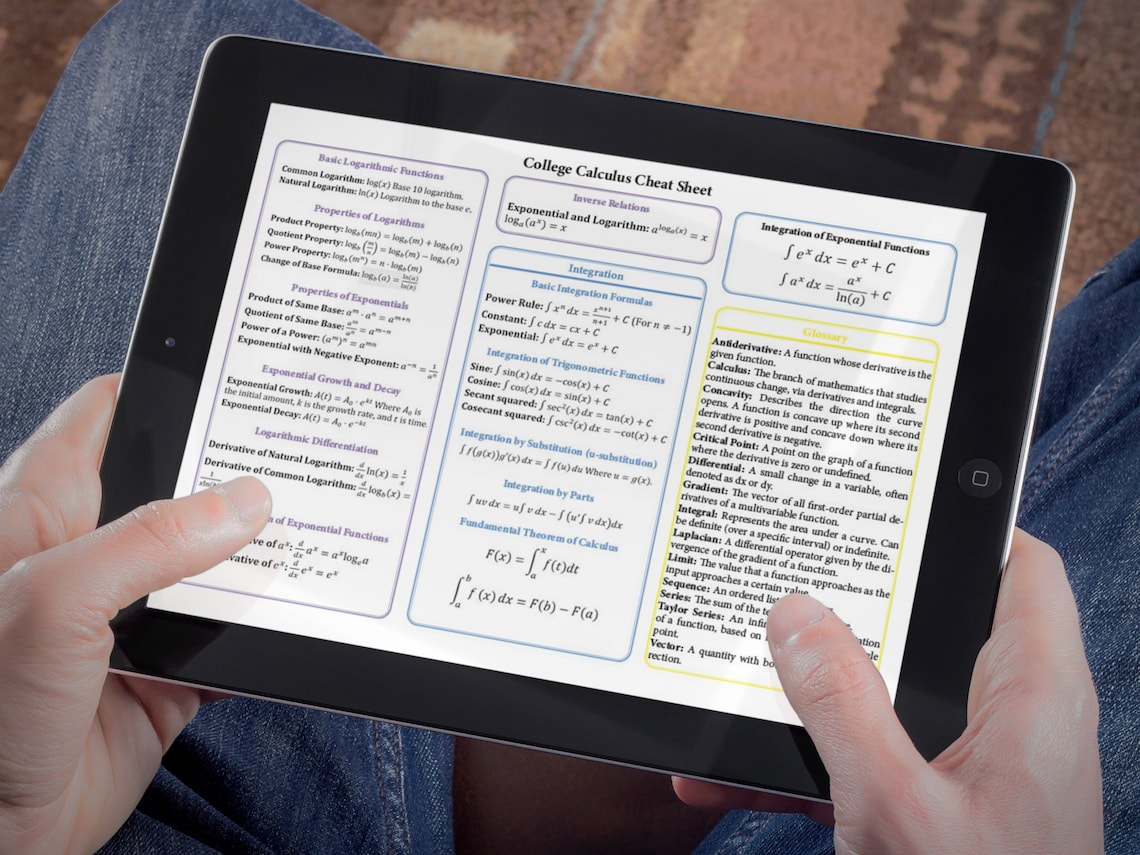 College Calculus Cheat Sheet
Basic Logarithmic Functions
Common Logarithm: log(x) Base 10 logarithm.
Natural Logarithm: ln(x) Logarithm to the base e.
Properties of Logarithms
Product Property: log_b(mn) = log_b(m) + log_b(n)
Quotient Property: log_b(m/n) = log_b(m) − log_b(n)
Power Property: log_b(mⁿ) = n · log_b(m)
Change of Base Formula: log_b(a) = ln(a)/ln(b)
Properties of Exponentials
Product of Same Base: a^m · a^n = a^(m+n)
Quotient of Same Base: a^m/a^n = a^(m−n)
Power of a Power: (a^m)^n = a^(mn)
Exponential with Negative Exponent: a^(−n) = 1/a^n
Exponential Growth and Decay
Exponential Growth: A(t) = A₀ · e^(kt) Where A₀ is
the initial amount, k is the growth rate, and t is time.
Exponential Decay: A(t) = A₀ · e^(−kt)
Logarithmic Differentiation
Derivative of Natural Logarithm: d/dx ln(x) = 1/x
Derivative of Common Logarithm: d/dx log_b(x) =
of Exponential Functions
of a^x: d/dx a^x = a^x log_e a
of e^x: d/dx e^x = e^x
Inverse Relations
Exponential and Logarithm: a^(log_a(x)) = x
log_a(a^x) = x
Integration
Basic Integration Formulas
Power Rule: ∫ x^n dx = x^(n+1)/(n+1) + C (For n ≠ −1)
Constant: ∫ c dx = cx + C
Exponential: ∫ e^x dx = e^x + C
Integration of Trigonometric Functions
Sine: ∫ sin(x) dx = −cos(x) + C
Cosine: ∫ cos(x) dx = sin(x) + C
Secant squared: ∫ sec²(x) dx = tan(x) + C
Cosecant squared: ∫ csc²(x) dx = −cot(x) + C
Integration by Substitution (u-substitution)
∫ f(g(x))g′(x) dx = ∫ f(u) du Where u = g(x).
Integration by Parts
∫ uv dx = u∫ v dx − ∫ (u′∫ v dx)dx
Fundamental Theorem of Calculus
F(x) = ∫_a^x f(t)dt
∫_a^b f(x) dx = F(b) − F(a)
Integration of Exponential Functions
∫ e^x dx = e^x + C
∫ a^x dx = a^x/ln(a) + C
Glossary
Antiderivative: A function whose derivative is the
given function.
Calculus: The branch of mathematics that studies
continuous change, via derivatives and integrals.
Concavity: Describes the direction the curve
opens. A function is concave up where its second
derivative is positive and concave down where its
second derivative is negative.
Critical Point: A point on the graph of a function
where the derivative is zero or undefined.
Differential: A small change in a variable, often
denoted as dx or dy.
Gradient: The vector of all first-order partial de-
rivatives of a multivariable function.
Integral: Represents the area under a curve. Can
be definite (over a specific interval) or indefinite.
Laplacian: A differential operator given by the di-
vergence of the gradient of a function.
Limit: The value that a function approaches as the
input approaches a certain value.
Sequence: An ordered
Series: The sum of the
Taylor Series: An
of a function, based on
point.
Vector: A quantity with
rection.